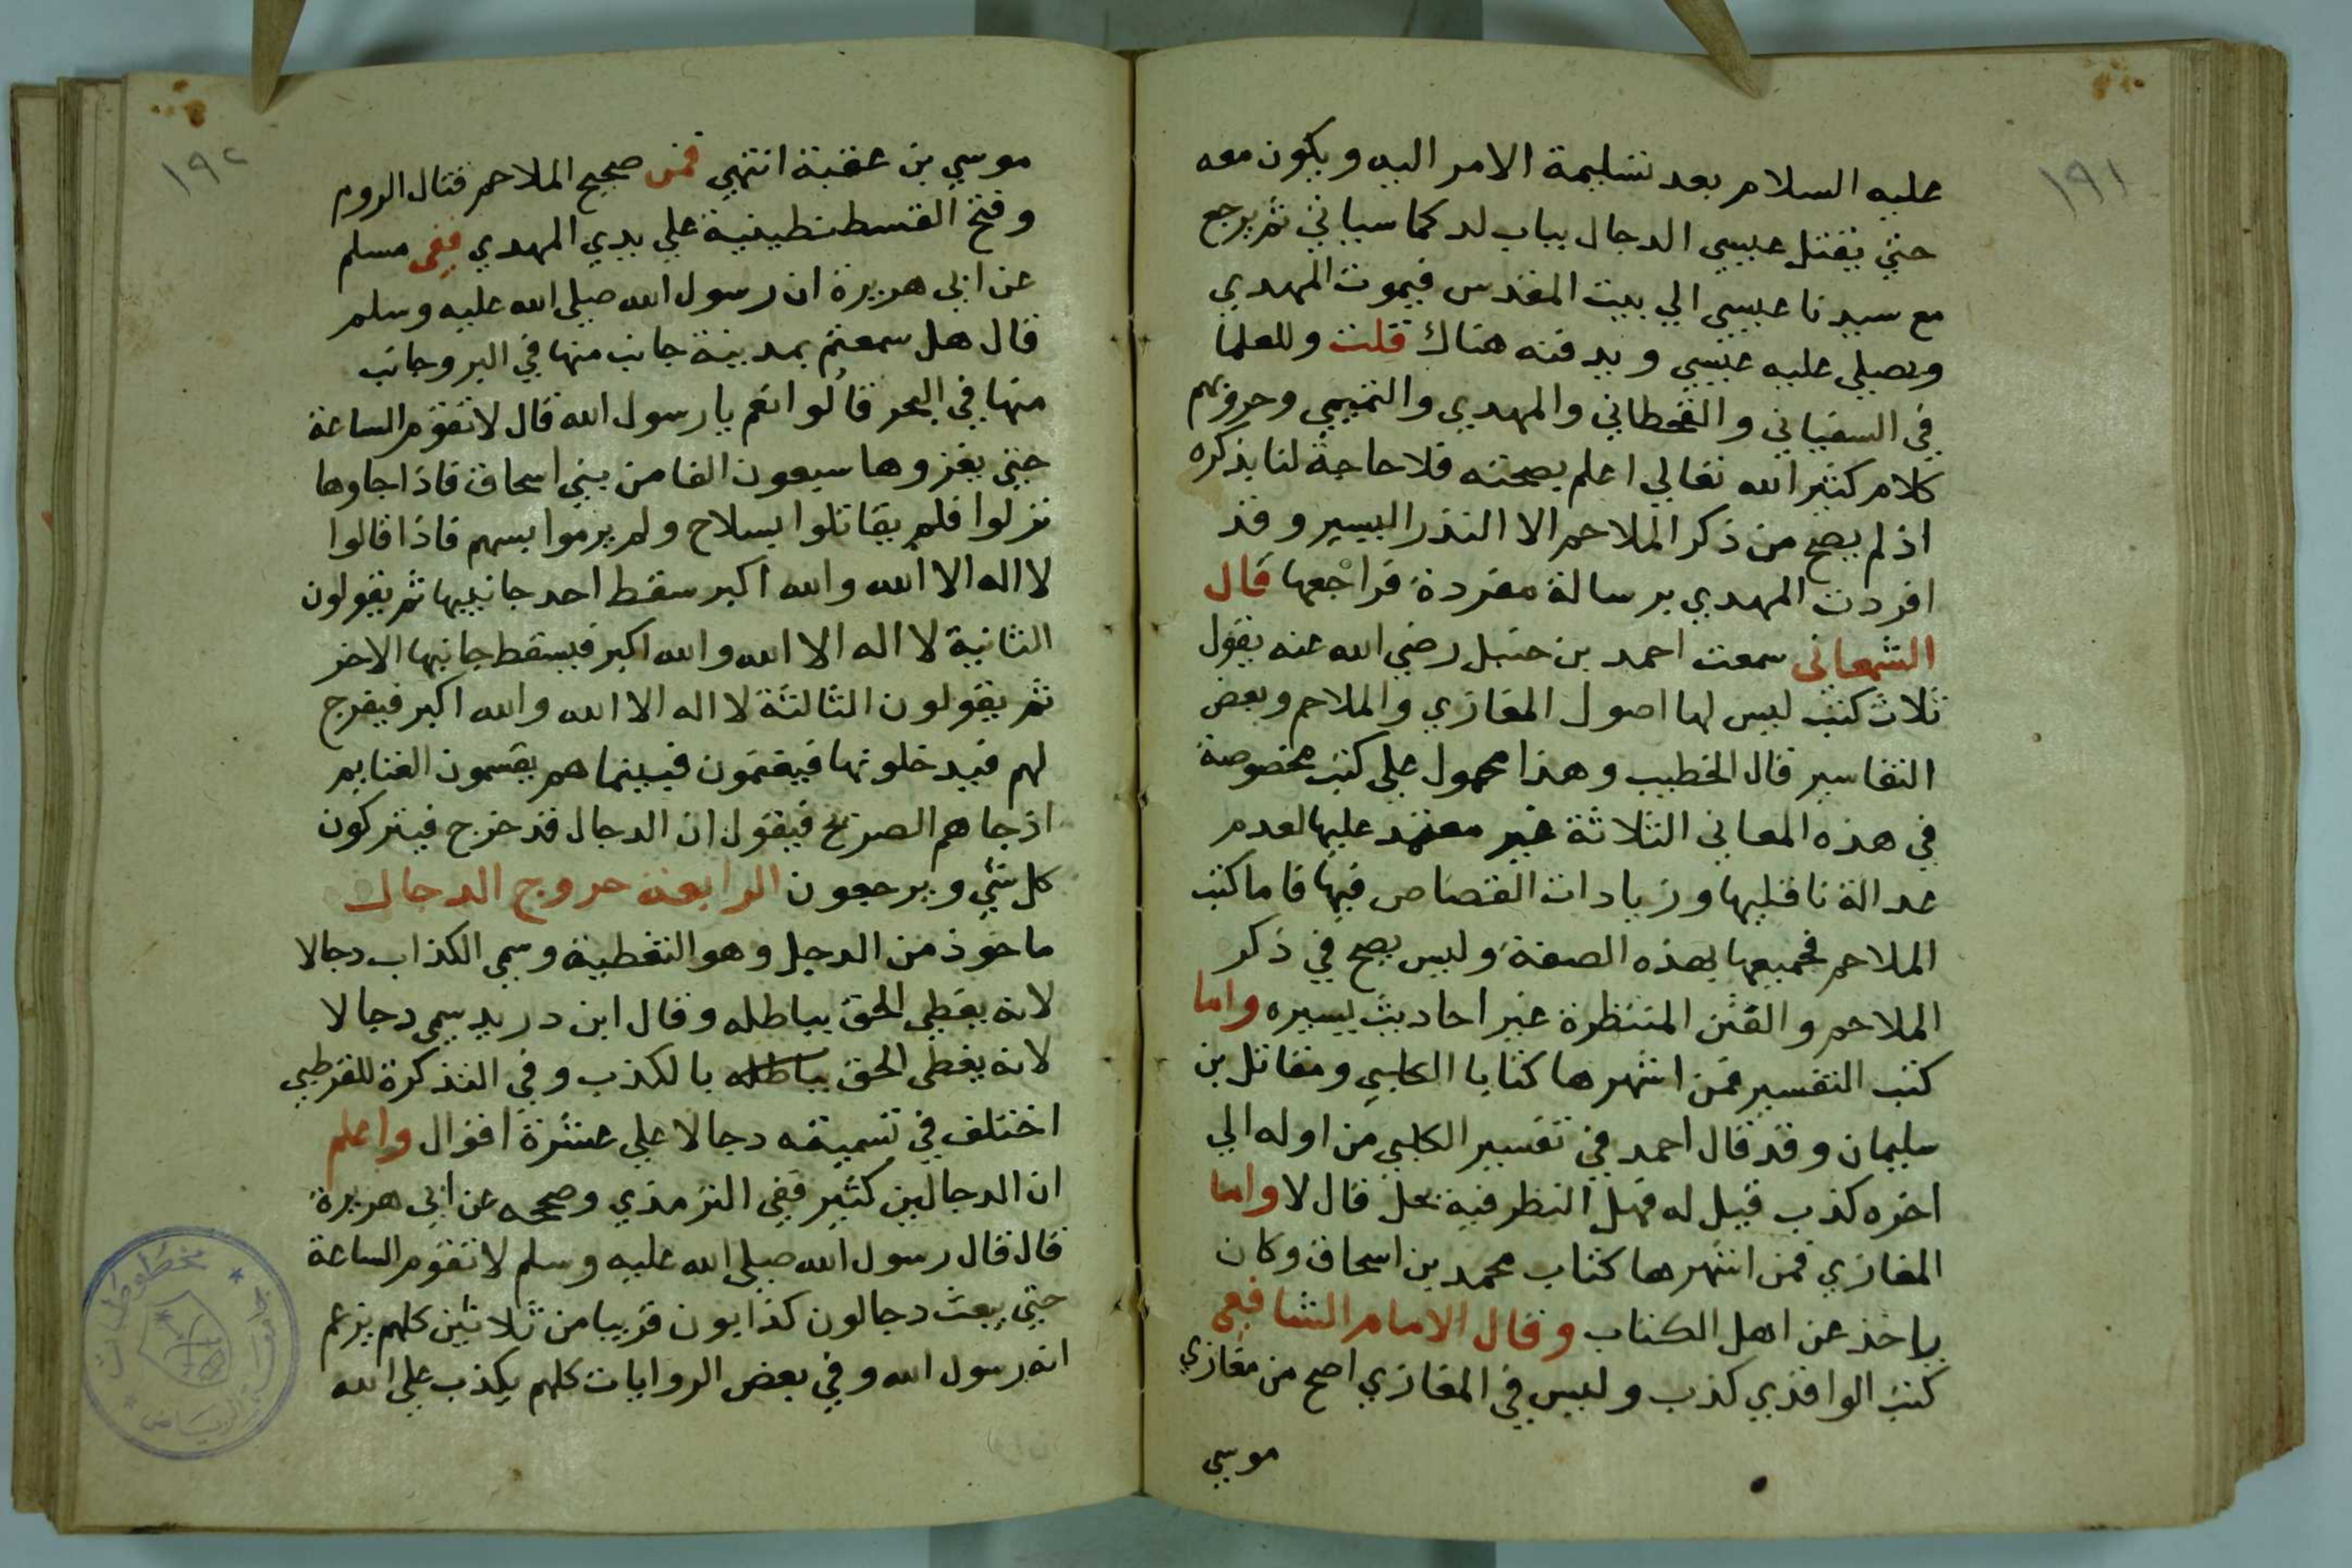 ١٩١
عليه السلام بعد تسليمة الامر اليه ويكون معه
حتي يقتل عيسي الدجال بباب لد كما سياتي ثم يرجع
مع سيدنا عيسي الي بيت المقدس فيموت المهدي
ويصلي عليه عيسي ويدفنه هناك قلت وللعلما
في السفياني والقحطاني والمهدي والتميمي وحروبهم
كلام كثير الله تعالي اعلم بصحته فلا حاجة لنا بذكره
اذ لم يصح من ذكر الملاحم الا النذر اليسير وقد
افردت المهدي برسالة مفردة فراجعها قال
سمعت احمد بن حنبل رضي الله عنه يقول
ثلاث كتب ليس لها اصول المغازي والملاحم وبعض
التفاسير قال الخطيب وهذا محمول علي كتب مخصوصة
في هذه المعاني الثلاثة غير معتمد عليها لعدم
عدالة ناقليها وزيادات القصاص فيها فاما كتب
الملاحم فجميعها بهذه الصفة وليس يصح في ذكر
الملاحم والفتن المنتظرة غير احاديث يسيره واما
كتب التفسير فمن اشهرها كتابا الكلبي ومقاتل بن
سليمان وقد قال احمد في تفسير الكلبي من اوله الي
اخره كذب قيل له فهل النظر فيه يحل قال لا واما
المغازي فمن اشهرها كتاب محمد بن اسحاق وكان
ياخذ عن اهل الكتاب وقال الامام الشافعي
كتب الواقدي كذب وليس في المغازي اصح من مغازي
موسي
١٩٢
موسي بن عقبة انتهي فمن صحيح الملاحم قتال الروم
وفتح القسطنطينية علي يدي المهدي ففي مسلم
عن ابي هريرة ان رسول الله صلي الله عليه وسلم
قال هل سمعتم بمدينة جانب منها في البر وجانب
منها في البحر قالوا نعم يا رسول الله قال لا تقوم الساعة
حتي يغزوها سبعون الفا من بني اسحاق فاذا جاوها
نزلوا فلم يقاتلوا بسلاح ولم يرموا بسهم فاذا قالوا
لا اله الا الله والله اكبر سقط احد جانبيها ثم يقولون
الثانية لا اله الا الله والله اكبر فيسقط جانبها الاخر
ثم يقولون الثالثة لا اله الا الله والله اكبر فيفرج
لهم فيدخلونها فيغنمون فبينما هم يقسمون الغنايم
اذ جاهم الصريخ فيقول ان الدجال قد خرج فيتركون
كل شي ويرجعون الرابعة خروج الدجال
ماخوذ من الدجل وهو التغطية وسمي الكذاب دجالا
لانه يغطي الحق بباطله وقال ابن دريد سمي دجالا
لانه يغطي الحق بباطله بالكذب وفي التذكرة للقرطبي
اختلف في تسميته دجالا علي عشرة اقوال واعلم
ان الدجالين كثير ففي الترمذي وصححه عن ابي هريرة
قال قال رسول الله صلي الله عليه وسلم لا تقوم الساعة
حتي يبعث دجالون كذابون قريبا من ثلاثين كلهم يزعم
انه رسول الله وفي بعض الروايات كلهم يكذب علي الله
مخطوطات
الرياض